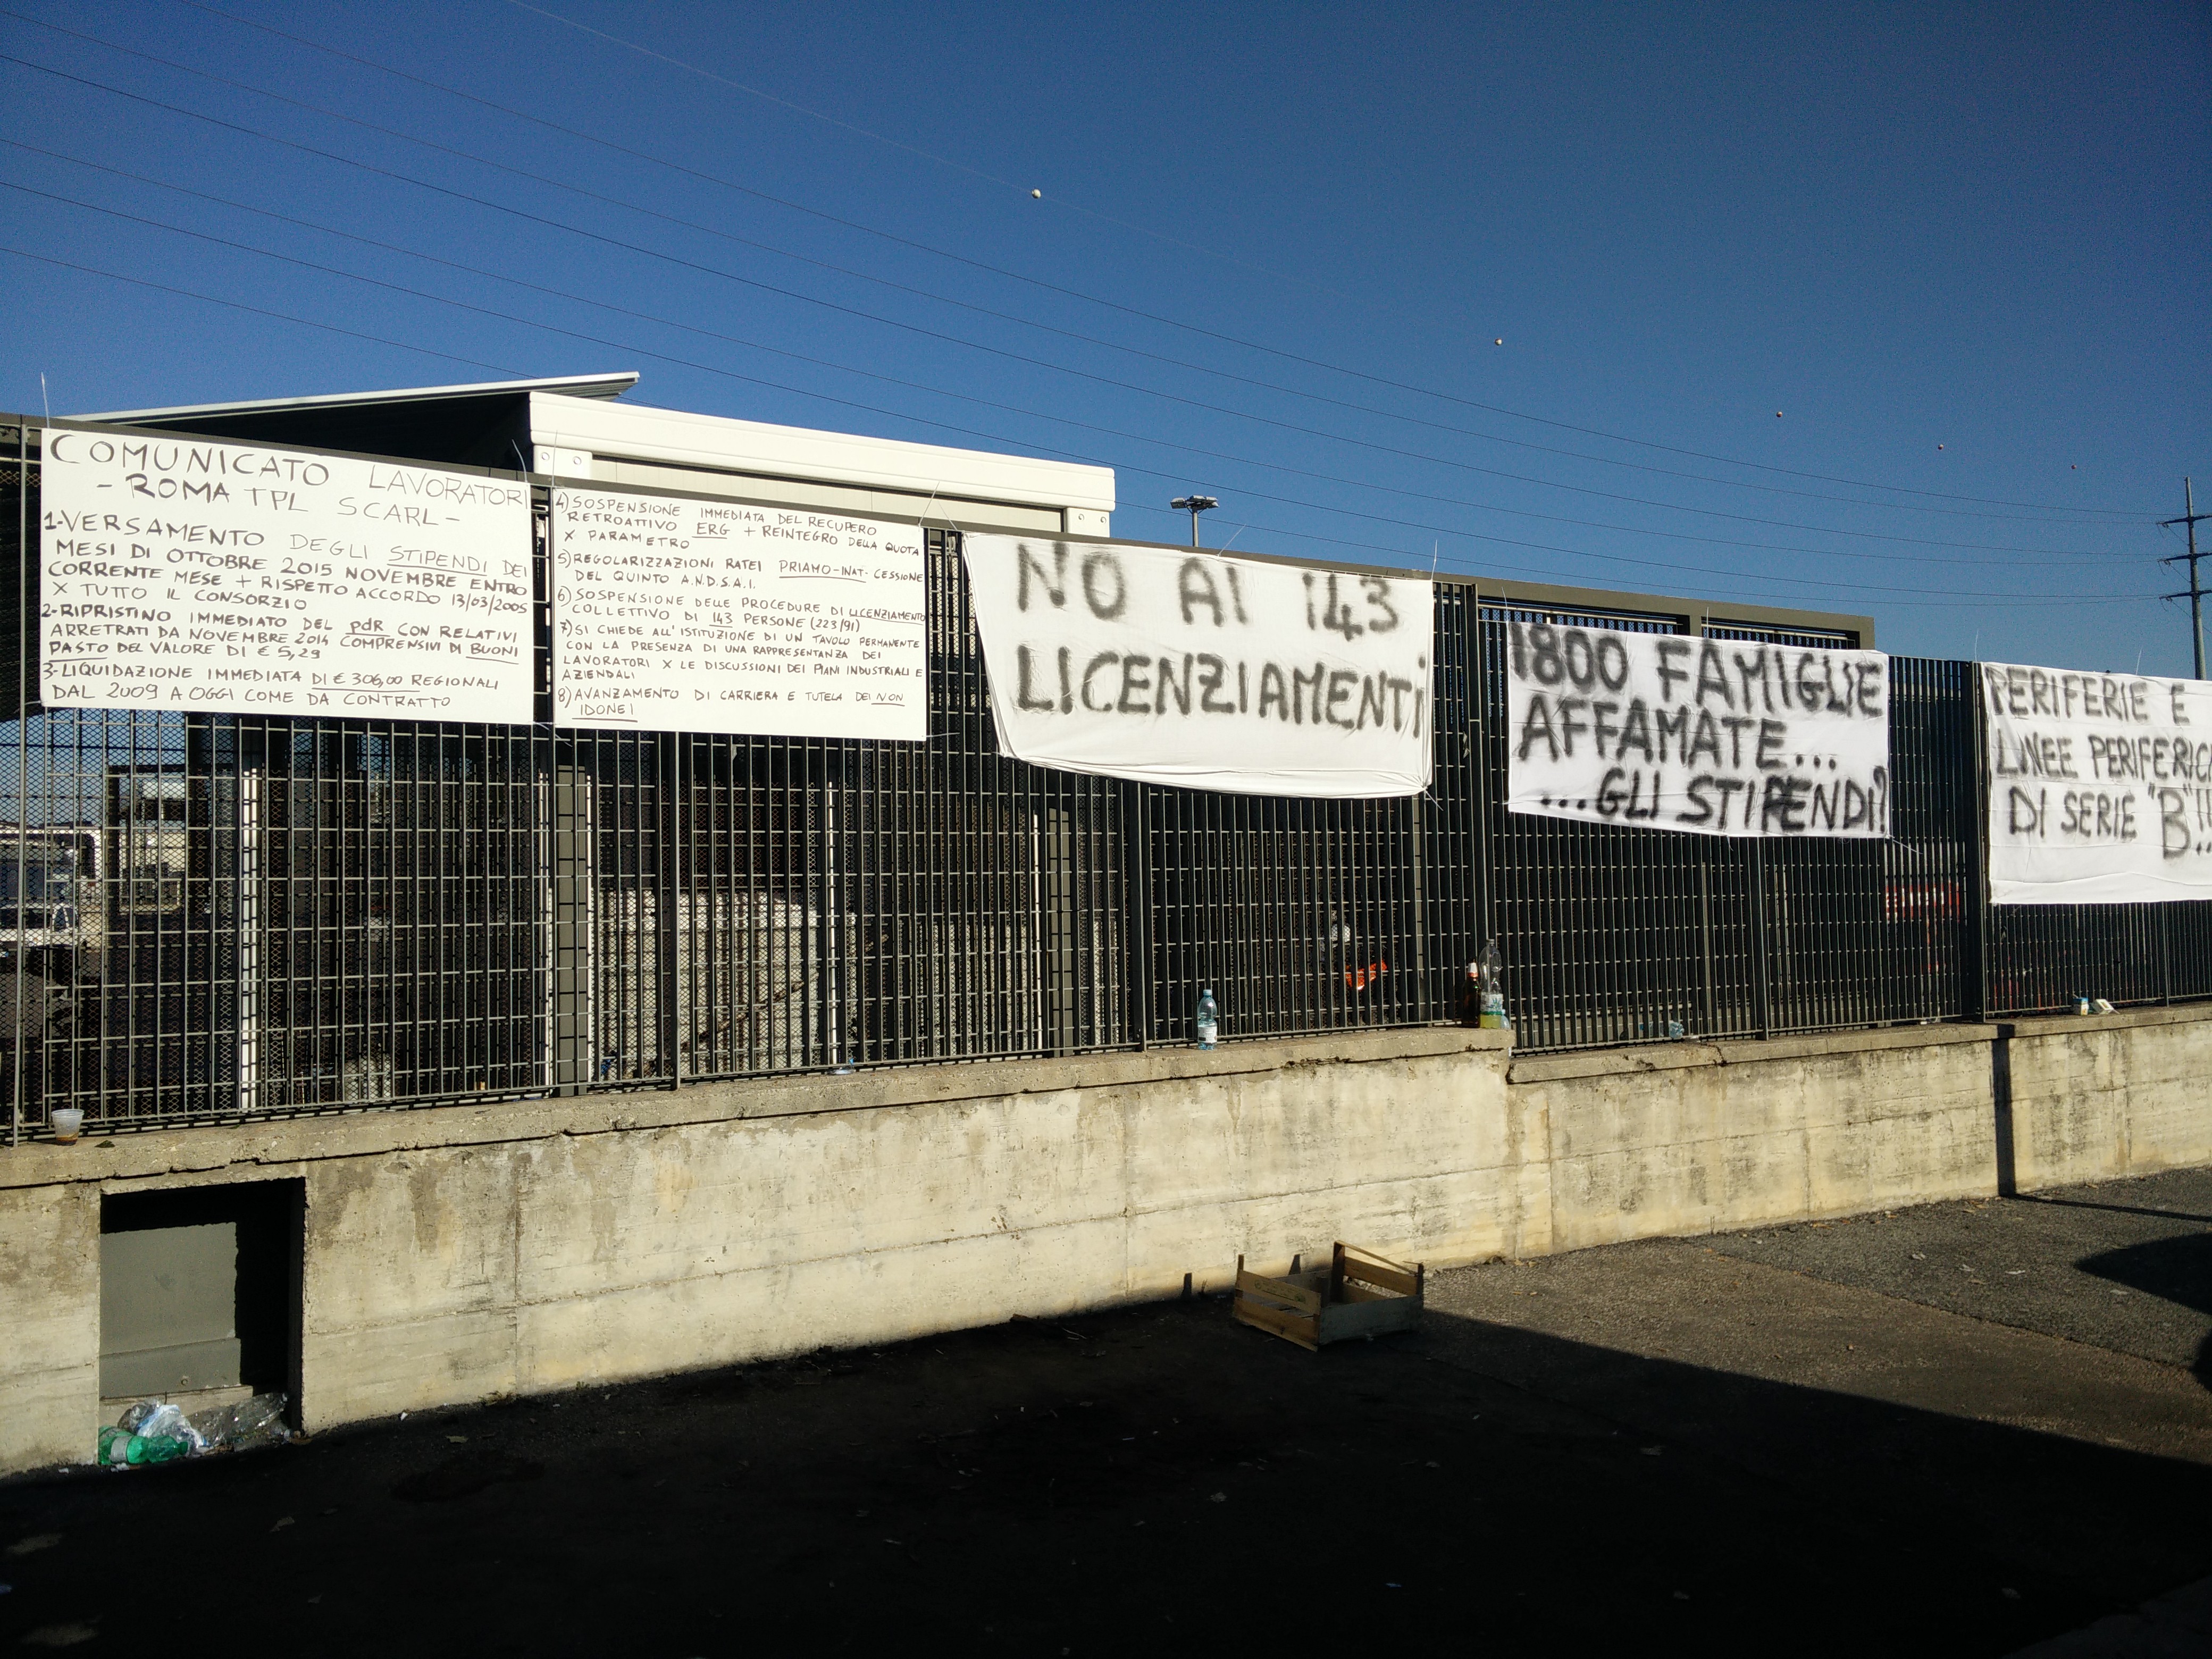 COMUNICATO LAVORATORI
- ROMA TPL SCARL -
1-VERSAMENTO DEGLI STIPENDI DEI
MESI DI OTTOBRE 2015 NOVEMBRE ENTRO
CORRENTE MESE + RISPETTO ACCORDO 13/03/2005
X TUTTO IL CONSORZIO
2-RIPRISTINO IMMEDIATO DEL pdR CON RELATIVI
ARRETRATI DA NOVEMBRE 2014 COMPRENSIVI DI BUONI
PASTO DEL VALORE DI € 5,29
3-LIQUIDAZIONE IMMEDIATA DI € 306,00 REGIONALI
DAL 2009 A OGGI COME DA CONTRATTO
4) SOSPENSIONE IMMEDIATA DEL RECUPERO
RETROATTIVO ERG + REINTEGRO DELLA QUOTA
X PARAMETRO
5) REGOLARIZZAZIONI RATEI PRIAMO-INAT- CESSIONE
DEL QUINTO A.N.D.S.A.I.
6) SOSPENSIONE DELLE PROCEDURE DI LICENZIAMENTO
COLLETTIVO DI 143 PERSONE (223/91)
7) SI CHIEDE ALL'ISTITUZIONE DI UN TAVOLO PERMANENTE
CON LA PRESENZA DI UNA RAPPRESENTANZA DEI
LAVORATORI X LE DISCUSSIONI DEI PIANI INDUSTRIALI E
AZIENDALI
8) AVANZAMENTO DI CARRIERA E TUTELA DEI NON
IDONEI
NO AI 143
LICENZIAMENTI
1800 FAMIGLIE
AFFAMATE...
...GLI STIPENDI?
PERIFERIE E
LINEE PERIFERIC
DI SERIE "B"!!